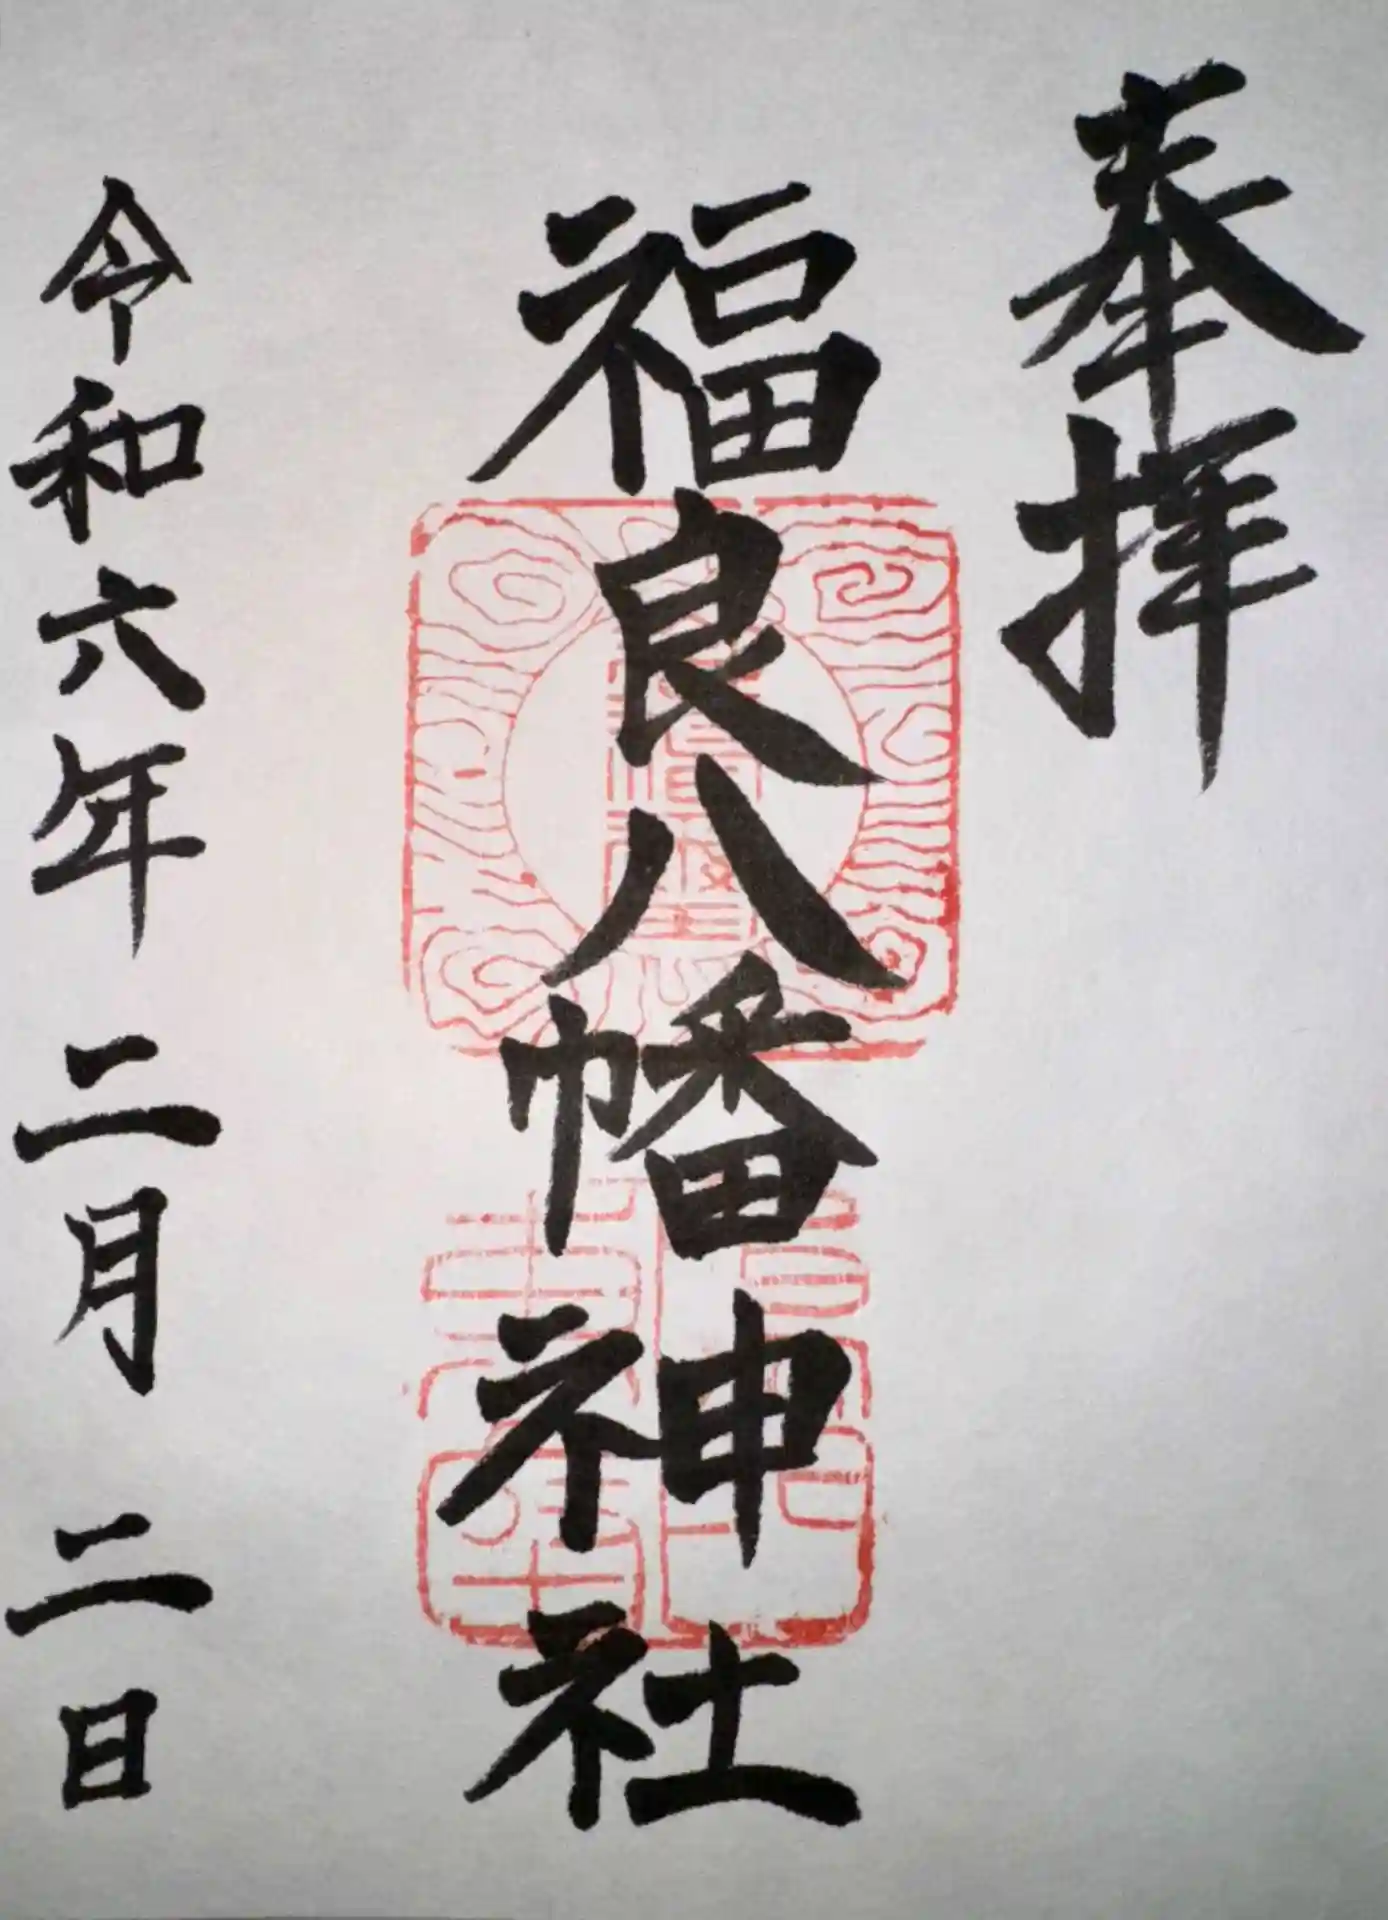 奉拝
福良八幡神社
令和六年 二月 二日